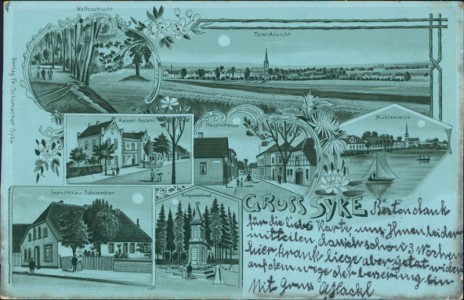 Wolfsschlucht
Total-Ansicht
Verlag Fr. Schumacher, Syke
Kaiserl. Postamt
Hauptstrasse
Mühlenteich
Gasthaus Schumacher
GRUSS SYKE
Besten dank
für die liebe Karte, und Ihnen leider
mitteilen das ich schon 3 Wochen
hier krank liege aber jetzt wieder
auf dem wege der besserung bin
Mit Gruss